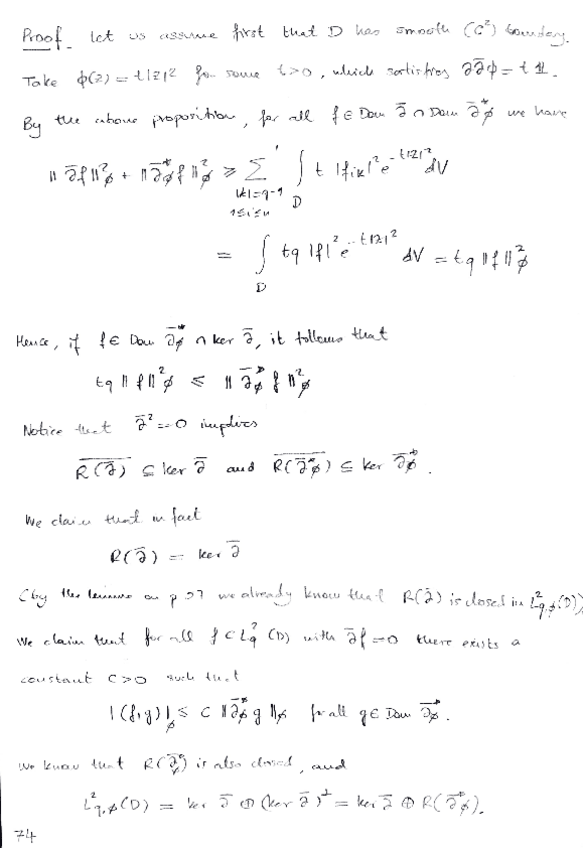 Proof. Let us assume first that D has smooth (C²) boundary.
Take ϕ(z) = t|z|² for some t>0, which satisfies ∂∂̄ϕ = t 𝟙.
By the above proposition, for all f ∈ Dom ∂̄ ∩ Dom ∂̄*_ϕ we have
‖∂̄f‖²_ϕ + ‖∂̄*_ϕ f‖²_ϕ ≥ Σ'_{|K|=q-1, 1≤i≤n} ∫_D t |f_{iK}|² e^{-t|z|²} dV
= ∫_D tq |f|² e^{-t|z|²} dV = tq ‖f‖²_ϕ
Hence, if f ∈ Dom ∂̄*_ϕ ∩ ker ∂̄, it follows that
tq ‖f‖²_ϕ ≤ ‖∂̄*_ϕ f‖²_ϕ
Notice that ∂̄² = 0 implies
\overline{R(∂̄)} ⊆ ker ∂̄ and \overline{R(∂̄*_ϕ)} ⊆ ker ∂̄*_ϕ.
We claim that in fact
R(∂̄) = ker ∂̄
(by the lemma on p we already know that R(∂̄) is closed in L²_{q,ϕ}(D))
We claim that for all f ∈ L²_q(D) with ∂̄f = 0 there exists a
constant C>0 such that
|(f,g)|_ϕ ≤ C ‖∂̄*_ϕ g‖_ϕ for all g ∈ Dom ∂̄*_ϕ.
We know that R(∂̄*_ϕ) is also closed, and
L²_{q,ϕ}(D) = ker ∂̄ ⊕ (ker ∂̄)^⊥ = ker ∂̄ ⊕ R(∂̄*_ϕ).
74